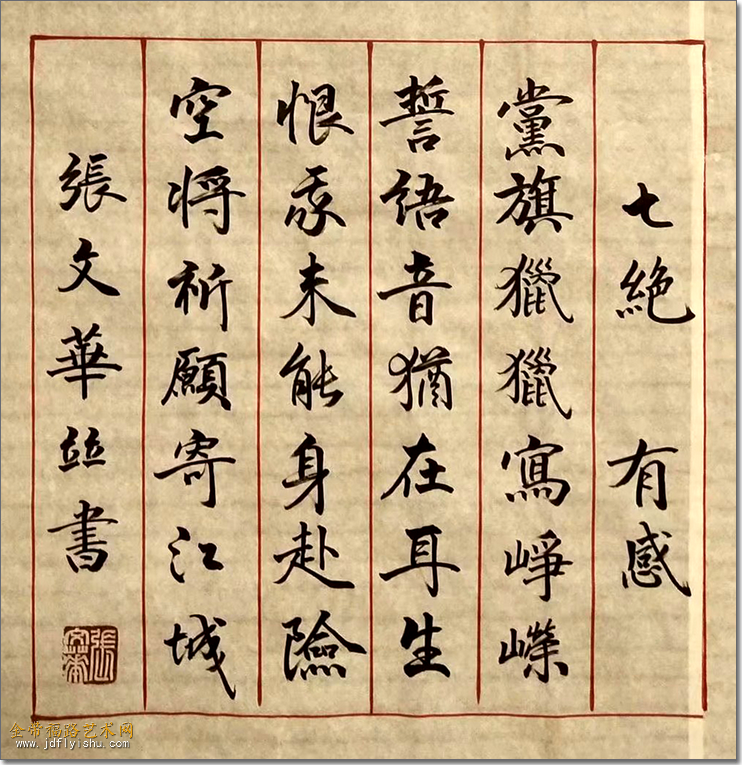 七絶 有感
黨旗獵獵寫崢嶸
誓語音猶在耳生
恨我未能身赴險
空將祈願寄江城
張文華並書
金带福路艺术网
www.jdflyishu.com